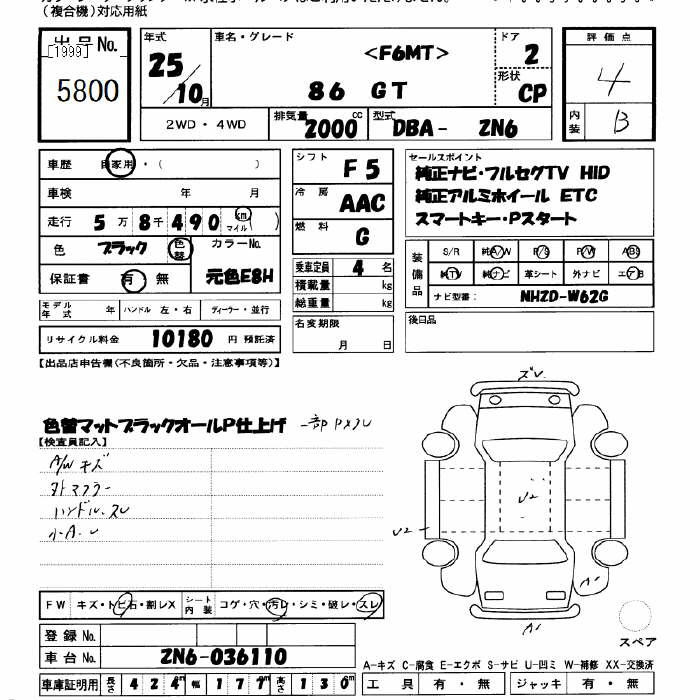 （複合機）対応用紙
出品No.
[1999]
5800
年式
25/10月
車名・グレード
<F6MT>
86 GT
ドア
2
形状
CP
2WD・4WD
排気量
2000 cc
型式
DBA- ZN6
評価点
4
内装
B
車歴 自家用・( )
車検 年 月
走行 5万8千490 km マイル( )
色 ブラック 色替 カラーNo.
保証書 有・無 元色E8H
シフト
F5
冷房
AAC
燃料
G
乗車定員 4 名
積載量 kg
総重量 kg
セールスポイント
純正ナビ・フルセグTV HID
純正アルミホイール ETC
スマートキー・Pスタート
装備品
S/R 純A/W P/S P/W ABS
純TV 純ナビ 革シート 外ナビ エアB
ナビ型番： NHZD-W62G
モデル年式 年 ハンドル 左・右 ディーラー・並行
リサイクル料金 10180 円 預託済
名変期限
月 日
後日品
【出品店申告欄(不良箇所・欠品・注意事項等)】
色替マットブラックオールP仕上げ 一部Pメクレ
【検査員記入】
A/Wキズ
外マフラー
ハンドルスレ
小A.U
ズレ
U2
U2
A1
A1
スペア
FW キズ・トビ石・割レX シート内装 コゲ・穴・汚レ・シミ・破レ・スレ
登録No.
車台No. ZN6-036110
車庫証明用 長さ 424cm 幅 177cm 高さ 130cm
A-キズ C-腐食 E-エクボ S-サビ U-凹ミ W-補修 XX-交換済
工具 有・無 ジャッキ 有・無